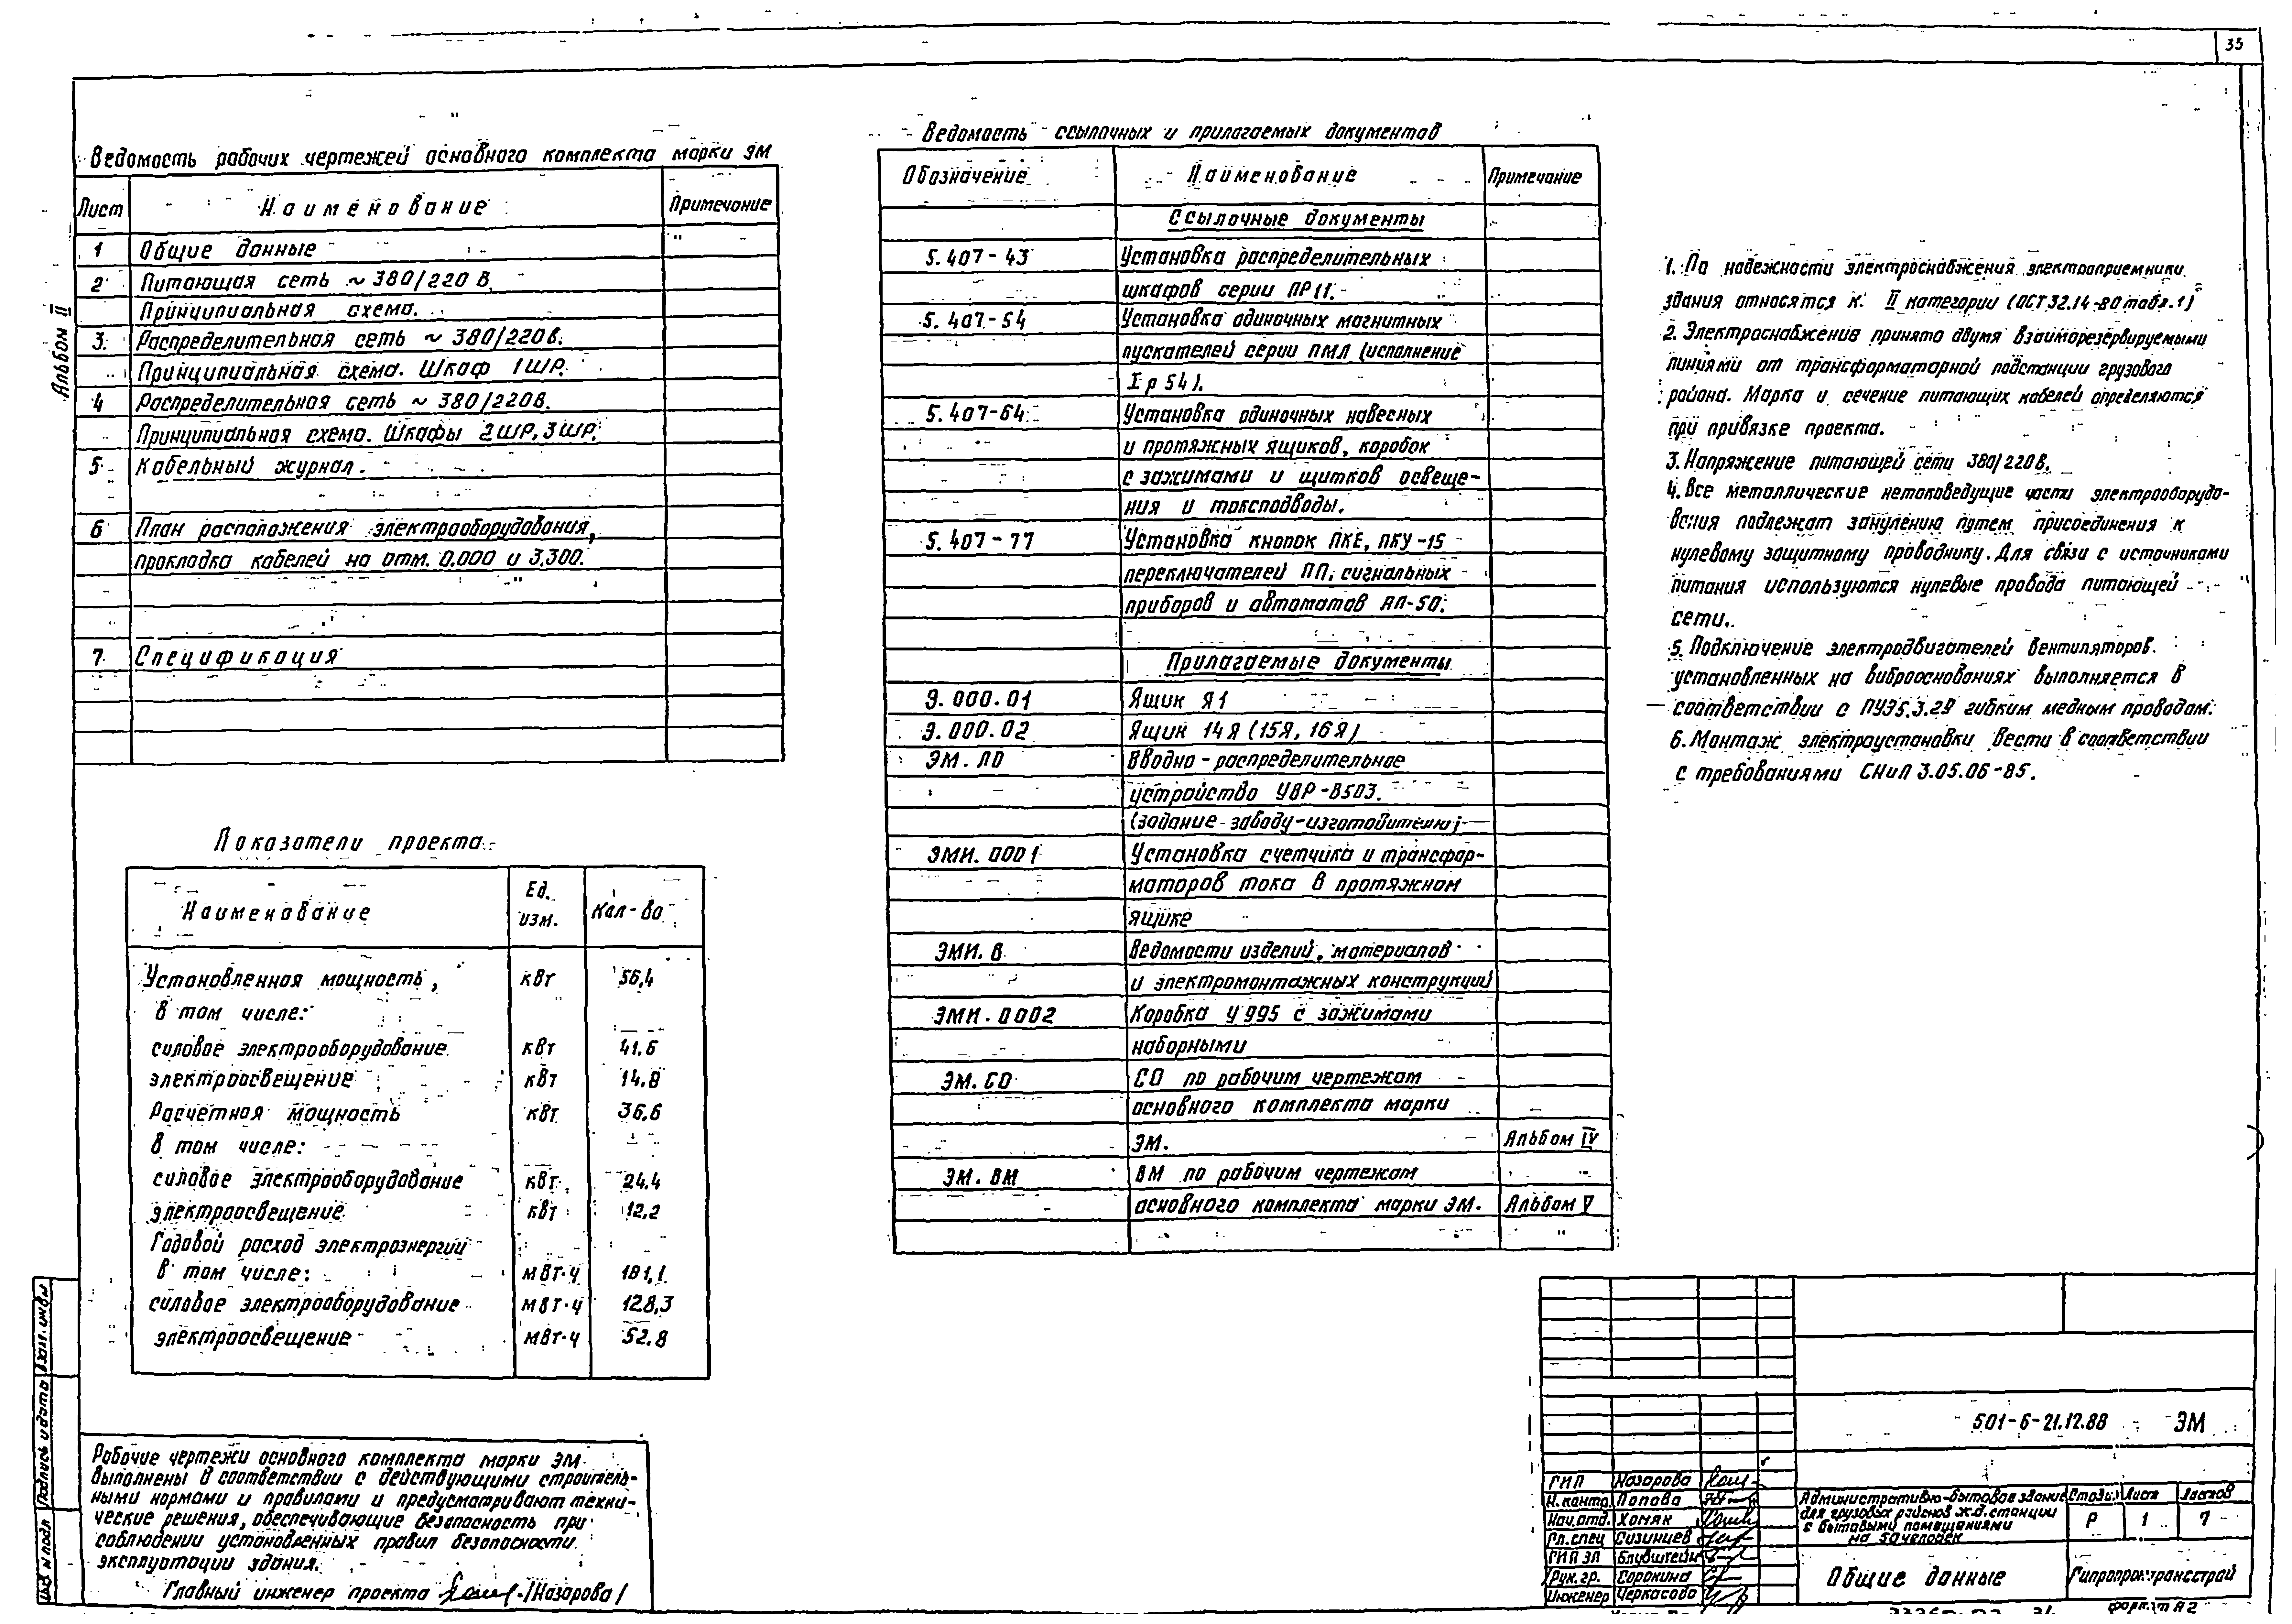 35
Альбом II
Ведомость рабочих чертежей основного комплекта марки ЭМ
Лист Наименование Примечание
1 Общие данные "
2 Питающая сеть ~ 380/220 В.
Принципиальная схема.
3. Распределительная сеть ~ 380/220В.
Принципиальная схема. Шкаф 1ШР.
4 Распределительная сеть ~ 380/220В.
Принципиальная схема. Шкафы 2ШР, 3ШР.
5 Кабельный журнал.
6 План расположения электрооборудования,
прокладка кабелей на отм. 0.000 и 3.300.
7. Спецификация
Показатели проекта
Наименование Ед. изм. Кол-во
Установленная мощность, кВт 56,4
в том числе:
силовое электрооборудование кВт 41.6
электроосвещение кВт 14.8
Расчетная мощность кВт 36.6
в том числе:
силовое электрооборудование кВт 24.4
электроосвещение кВт 12,2
Годовой расход электроэнергии
в том числе: МВт·ч 181,1
силовое электрооборудование МВт·ч 128,3
электроосвещение МВт·ч 52.8
Рабочие чертежи основного комплекта марки ЭМ
выполнены в соответствии с действующими строитель-
ными нормами и правилами и предусматривают техни-
ческие решения, обеспечивающие безопасность при
соблюдении установленных правил безопасности
эксплуатации здания.
Главный инженер проекта /Назарова/
Ведомость ссылочных и прилагаемых документов
Обозначение Наименование Примечание
Ссылочные документы
5.407-43 Установка распределительных
шкафов серии ПР11.
5.407-54 Установка одиночных магнитных
пускателей серии ПМЛ (исполнение
Iр54).
5.407-64 Установка одиночных навесных
и протяжных ящиков, коробок
с зажимами и щитков освеще-
ния и токоподводы.
5.407-77 Установка кнопок ПКЕ, ПКУ-15
переключателей ПП, сигнальных
приборов и автоматов АП-50.
Прилагаемые документы
Э.000.01 Ящик Я1
Э.000.02 Ящик 14Я (15Я, 16Я)
ЭМ.ЛО Вводно-распределительное
устройство УВР-8503.
(задание заводу-изготовителю)
ЭМИ.0001 Установка счетчика и трансфор-
маторов тока в протяжном
ящике
ЭМИ.В Ведомости изделий, материалов
и электромонтажных конструкций
ЭМИ.0002 Коробка У995 с зажимами
наборными
ЭМ.СО СО по рабочим чертежам
основного комплекта марки
ЭМ. Альбом IV
ЭМ.ВМ ВМ по рабочим чертежам
основного комплекта марки ЭМ. Альбом V
1. По надежности электроснабжения электроприемники
здания относятся к II категории (ОСТ 32.14-80 табл.1)
2. Электроснабжение принято двумя взаиморезервируемыми
линиями от трансформаторной подстанции грузового
района. Марка и сечение питающих кабелей определяются
при привязке проекта.
3. Напряжение питающей сети 380/220В.
4. Все металлические нетоковедущие части электрооборудо-
вания подлежат занулению путем присоединения к
нулевому защитному проводнику. Для связи с источниками
питания используются нулевые провода питающей
сети.
5. Подключение электродвигателей вентиляторов
установленных на виброоснованиях выполняется в
соответствии с ПУЭ5.3.29 гибким медным проводом.
6. Монтаж электроустановки вести в соответствии
с требованиями СНиП 3.05.06-85.
501-6-21.12.88 ЭМ
ГИП Назарова
Н.контр. Попова
Нач.отд. Хомяк
Гл.спец Сизинцев
ГИП ЭЛ Блувштейн
Рук.гр. Сорокина
Инженер Черкасова
Административно-бытовое здание
для грузовых районов ж.д. станции
с бытовыми помещениями
на 50 человек
Стадия Лист Листов
Р 1 7
Общие данные
Гипропромтрансстрой
формат А2
Инв. N подл Подпись и дата Взам. инв N